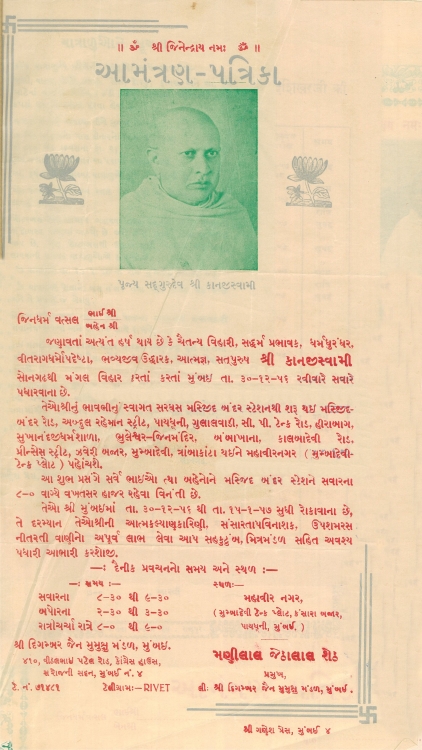 ॥ ૐ શ્રી જિનેન્દ્રાય નમઃ ૐ ॥
આમંત્રણ-પત્રિકા
પૂજ્ય સદ્‌ગુરુદેવ શ્રી કાનજીસ્વામી
જિનધર્મ વત્સલ ભાઈ શ્રી
બહેન શ્રી
જણાવતાં અત્યંત હર્ષ થાય છે કે ચૈતન્ય વિહારી, સદ્ધર્મ પ્રભાવક, ધર્મધુરંધર,
વીતરાગધર્મોપદેષ્ટા, ભવ્યજીવ ઉદ્ધારક, આત્મજ્ઞ, સતપુરુષ શ્રી કાનજીસ્વામી
સોનગઢથી મંગલ વિહાર કરતા કરતા મુંબઈ તા. ૩૦-૧૨-૫૬ રવીવારે સવારે
પધારવાના છે.
તેઓશ્રીનું ભાવભીનું સ્વાગત સરઘસ મસ્જિદ બંદર સ્ટેશનથી શરૂ થઈ મસ્જિદ-
બંદર રોડ, અબ્દુલ રહેમાન સ્ટ્રીટ, પાયધુની, ગુલાલવાડી, સી. પી. ટેન્ક રોડ, હીરાબાગ,
સુખાનંદજીધર્મશાળા, ભુલેશ્વર-જિનમંદિર, બંબાખાના, કાલબાદેવી રોડ,
પ્રીન્સેસ સ્ટ્રીટ, ઝવેરી બજાર, મુમ્બાદેવી, ત્રાંબાકાંટા થઈને મહાવીરનગર ( મુમ્બાદેવી-
ટેન્ક પ્લોટ ) પહોંચશે.
આ શુભ પ્રસંગે સર્વે ભાઈઓ તથા બહેનોને મસ્જિદ બંદર સ્ટેશને સવારના
૮-૦ વાગ્યે વખતસર હાજર રહેવા વિનંતી છે.
તેઓ શ્રી મુંબઈમાં તા. ૩૦-૧૨-૫૬ થી તા. ૧૫-૧-૫૭ સુધી રોકાવાના છે,
તે દરમ્યાન તેઓશ્રીની આત્મકલ્યાણકારિણી, સંસારતાપવિનાશક, ઉપશમરસ
નીતરતી વાણીનો અપૂર્વ લાભ લેવા આપ સહકુટુંબ, મિત્રમંડળ સહિત અવશ્ય
પધારી આભારી કરશોજી.
—: દૈનીક પ્રવચનનો સમય અને સ્થળ :—
—: સમય :—
સવારના ૮-૩૦ થી ૯-૩૦
બપોરના ૨-૩૦ થી ૩-૩૦
રાત્રીચર્ચા રાત્રે ૮-૦ થી ૯-૦
સ્થળઃ—
મહાવીર નગર,
( મુમ્બાદેવી ટેન્ક પ્લોટ, કંસારા બજાર,
પાયધુની, મુંબઈ. )
શ્રી દિગમ્બર જૈન મુમુક્ષુ મંડળ, મુંબઈ.
૪૧૦, વીઠલભાઈ પટેલ રોડ, કોંગ્રેસ હાઉસ,
સરોજની સદન, મુંબઈ નં. ૪
ટે. નં. ૭૧૪૮૧ ટેલીગ્રામઃ-RIVET
મણીલાલ જેઠાલાલ શેઠ
પ્રમુખ,
લીઃ શ્રી દિગમ્બર જૈન મુમુક્ષુ મંડળ, મુંબઈ.
શ્રી ગણેશ પ્રેસ, મુંબઈ ૪